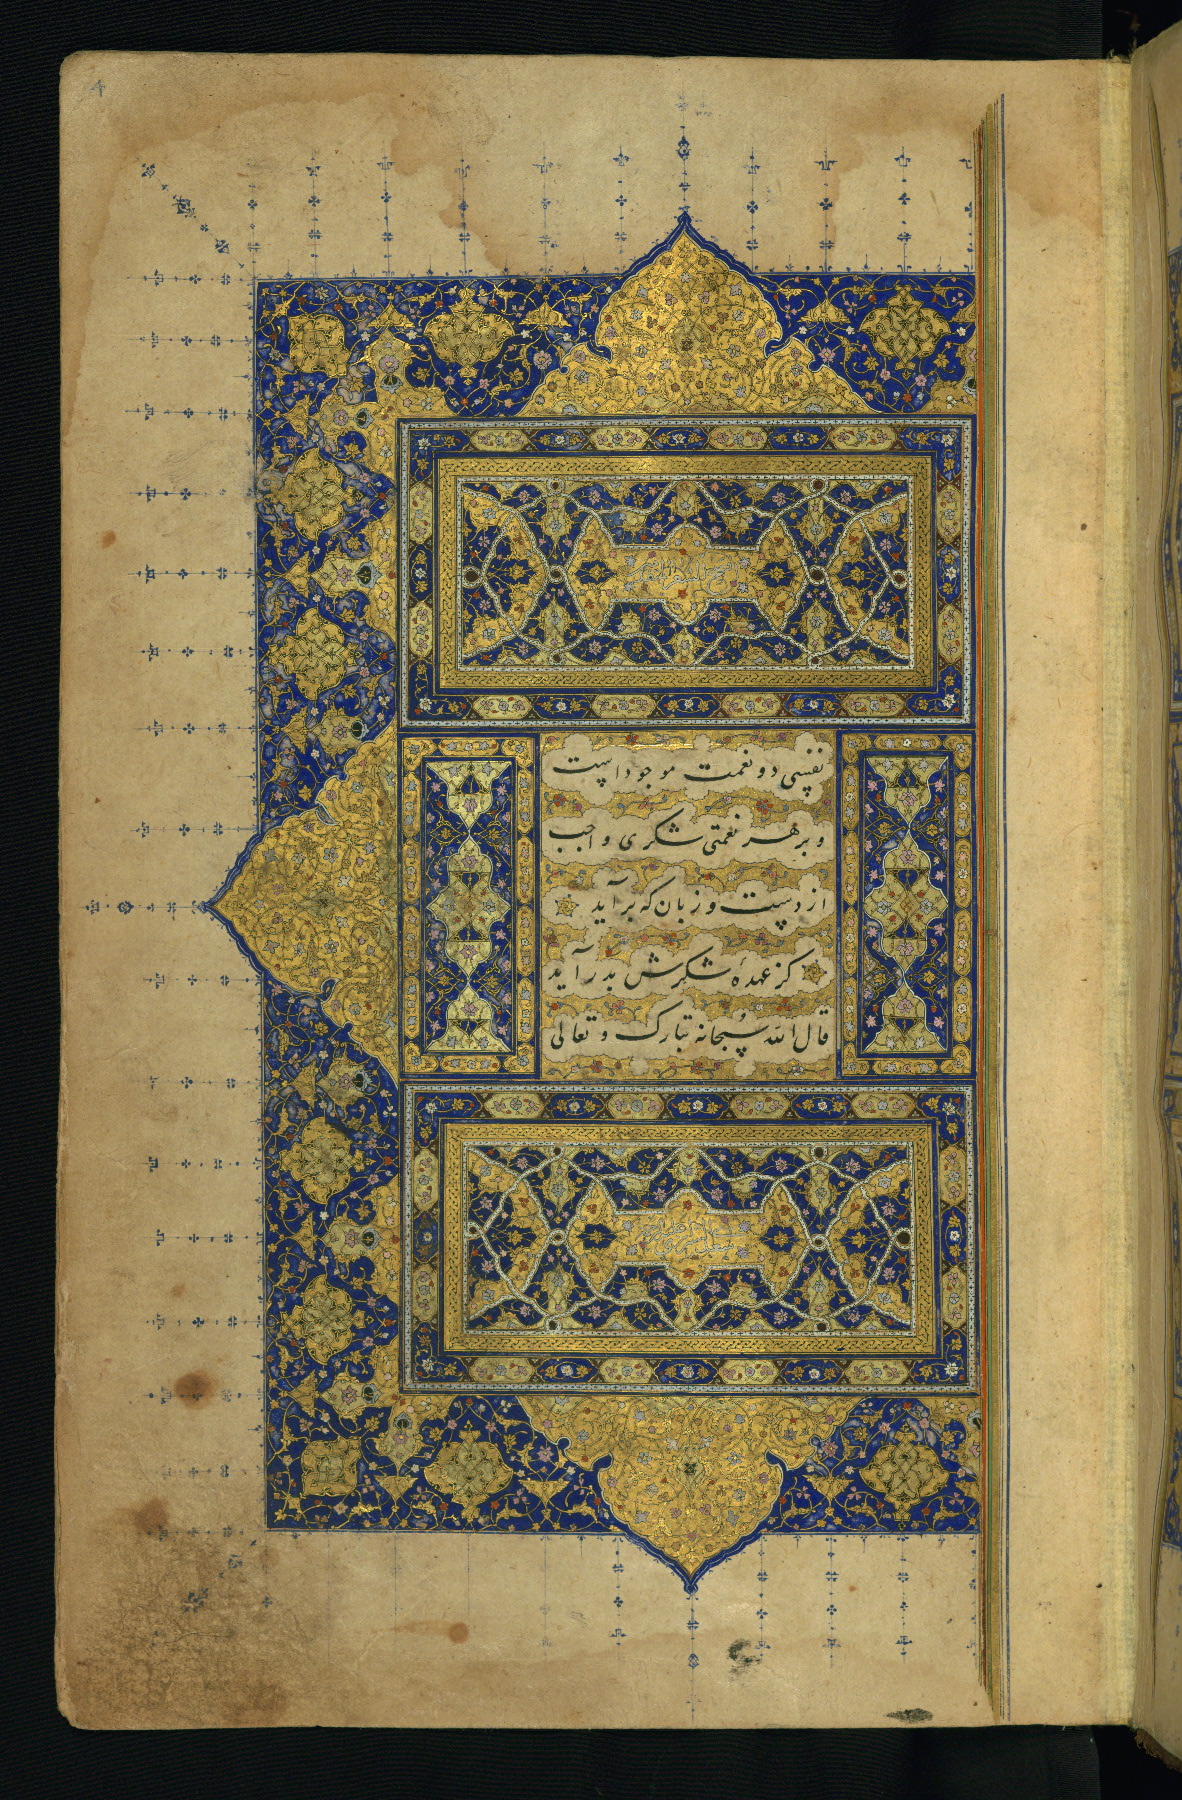 نفسی دو نعمت موجود است
و بر هر نعمتی شکری واجب
از دست و زبان که برآید
کز عهدهٔ شکرش بدر آید
قال الله سبحانه تبارک و تعالی